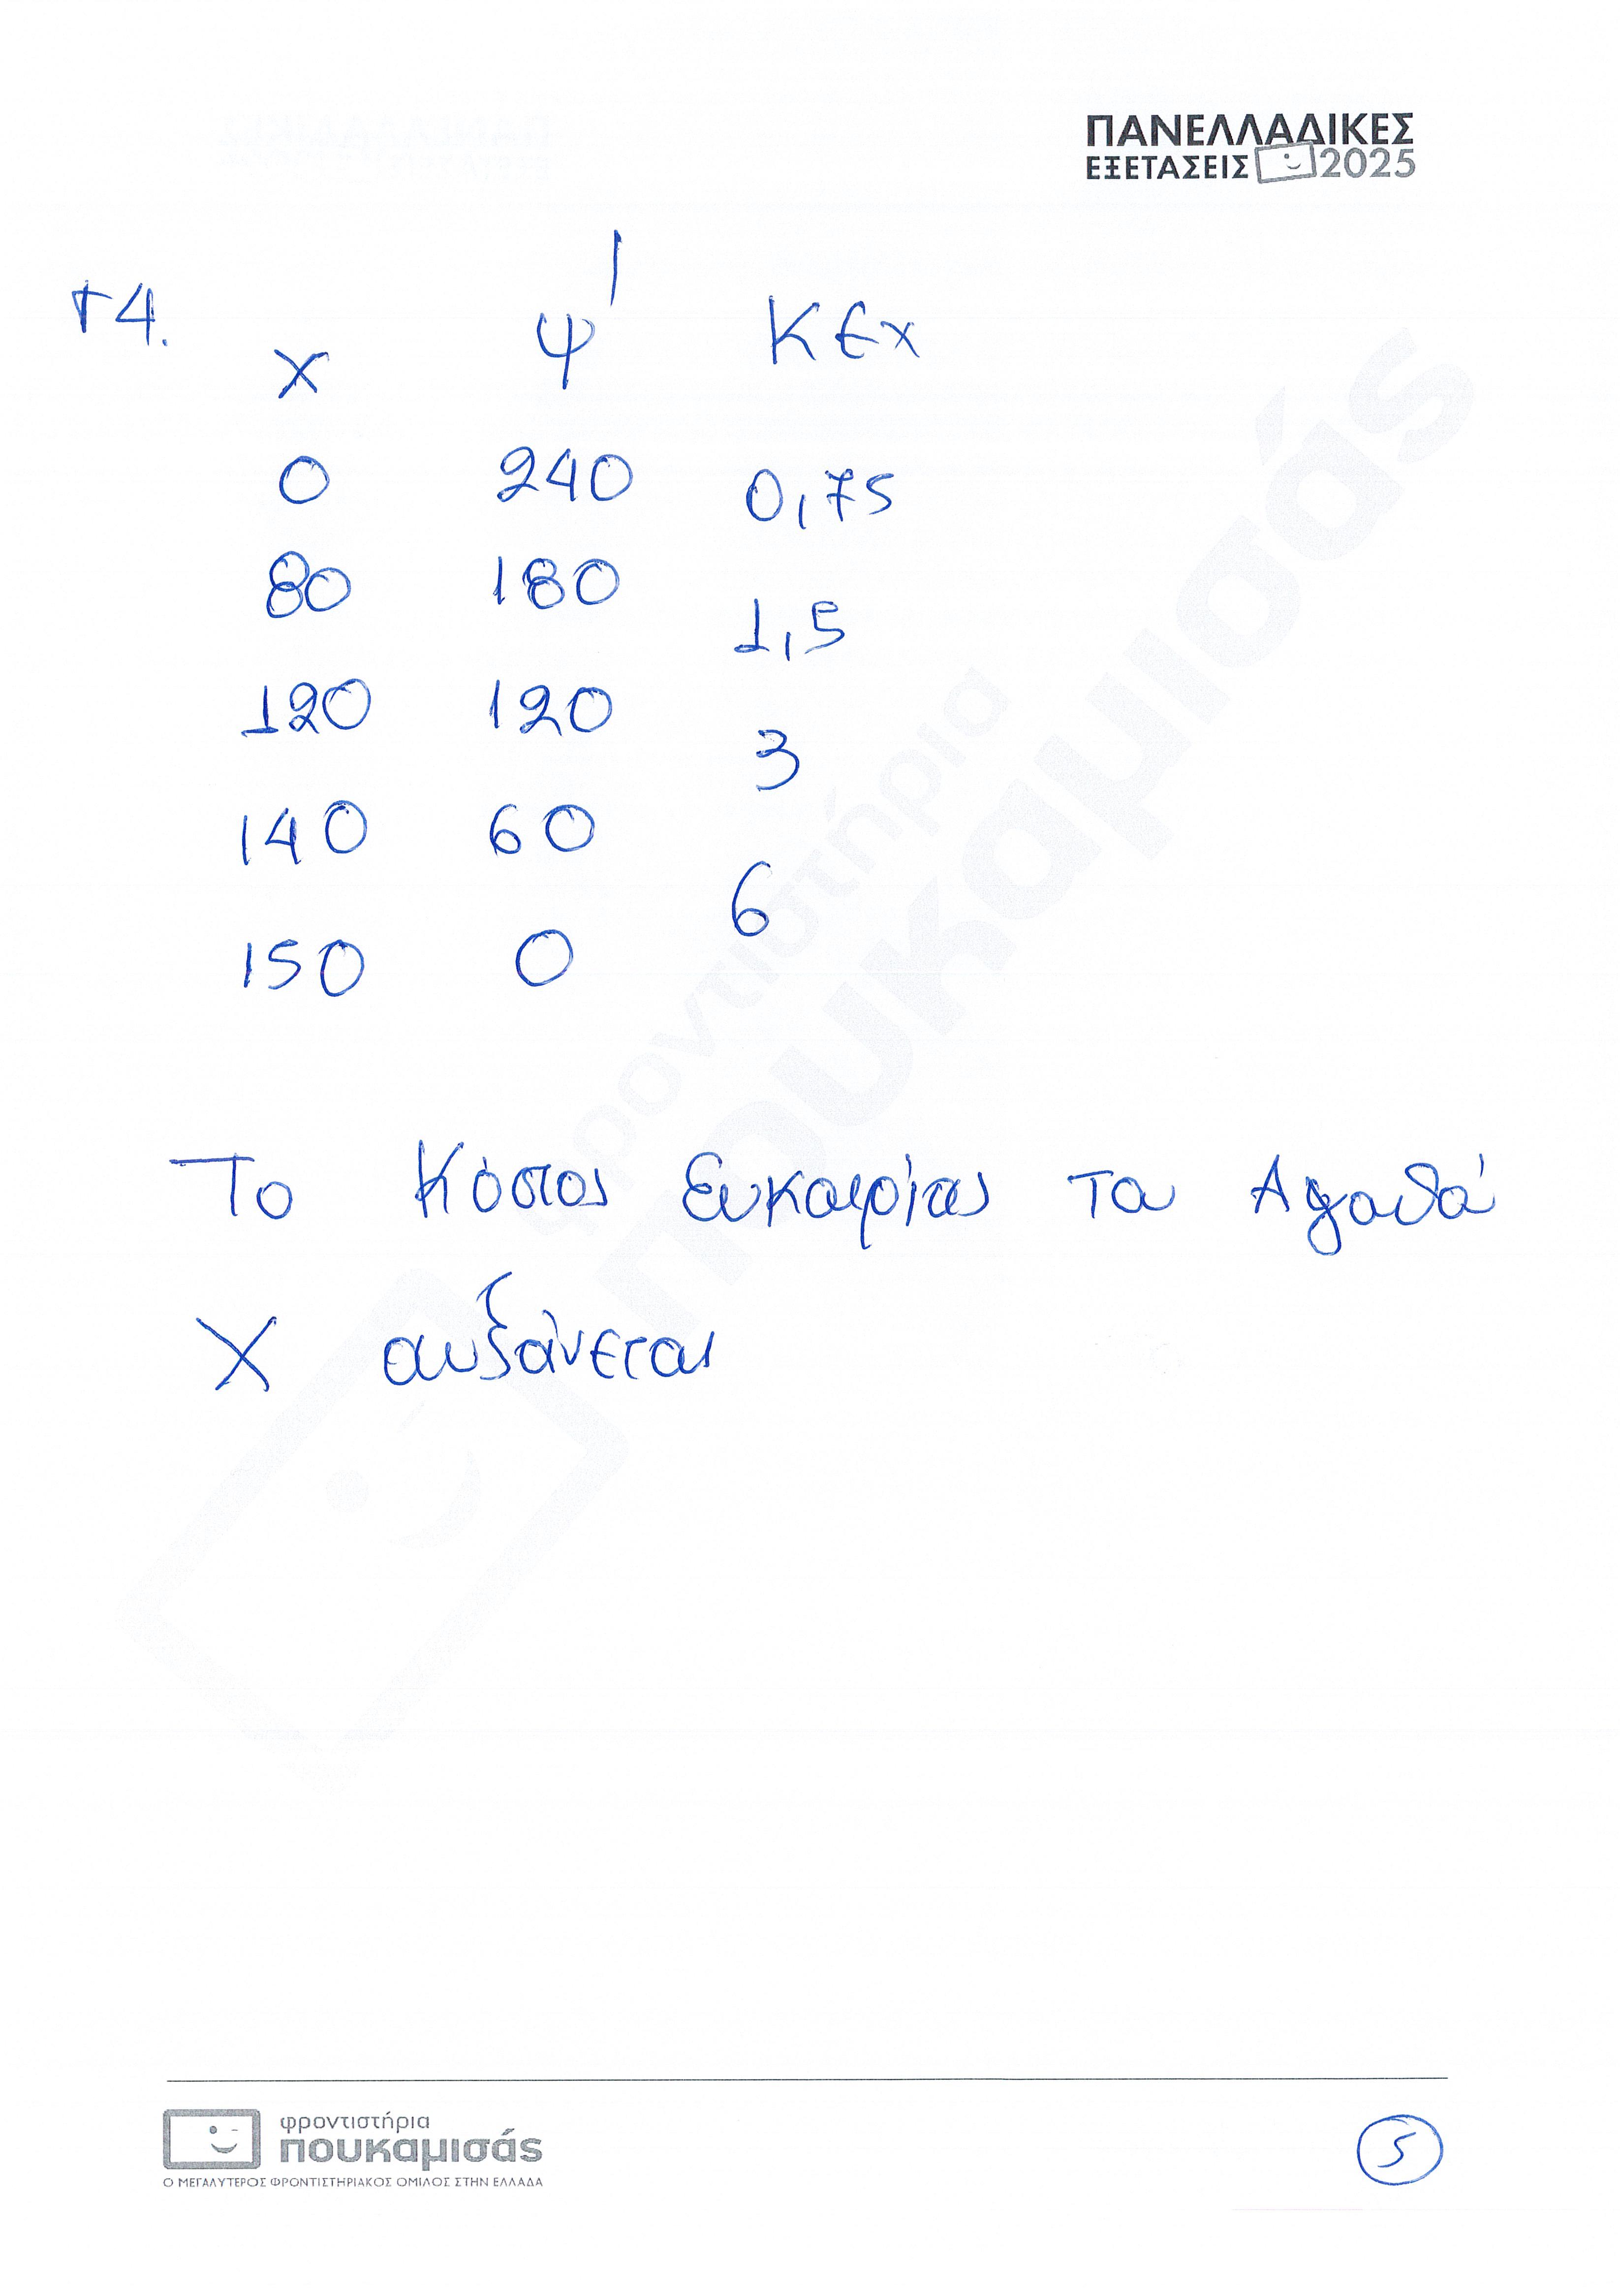 ΠΑΝΕΛΛΑΔΙΚΕΣ
ΕΞΕΤΑΣΕΙΣ 2025
Γ4.
Χ Ψ' ΚΕχ
0 240
0,75
80 180
1,5
120 120
3
140 60
6
150 0
Το Κόστος Ευκαιρίας του Αγαθού
Χ αυξάνεται
φροντιστήρια
πουκαμισάς
φροντιστήρια
πουκαμισάς
Ο ΜΕΓΑΛΥΤΕΡΟΣ ΦΡΟΝΤΙΣΤΗΡΙΑΚΟΣ ΟΜΙΛΟΣ ΣΤΗΝ ΕΛΛΑΔΑ
5